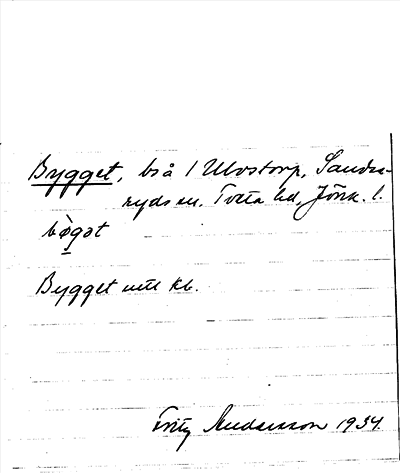 Bygget, bså 1 Ulvstorp, Sandse-
ryds sn. Tveta hd, Jönk. l.
bø̀gət
Bygget utt kb.
Fritz Andersson 1934.